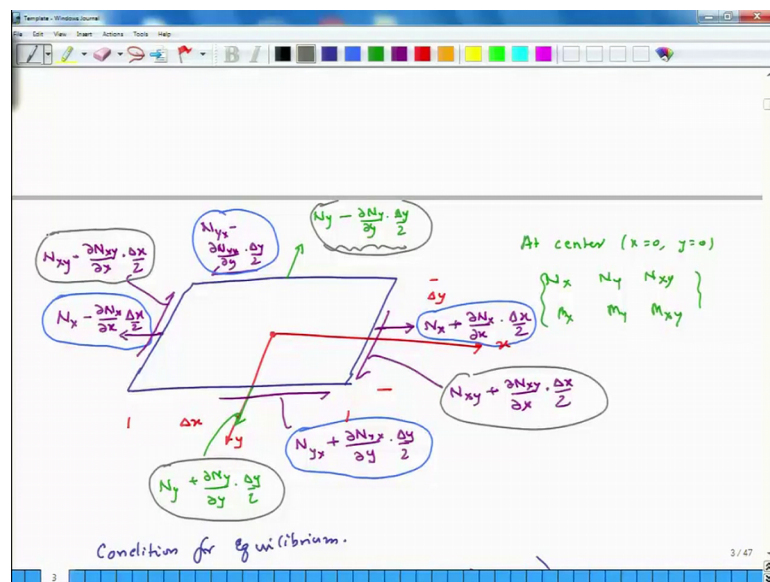 Template - Windows Journal
File Edit View Insert Actions Tools Help
B I
N_y − ∂N_y/∂y · Δy/2
N_yx − ∂N_yx/∂y · Δy/2
N_xy − ∂N_xy/∂x · Δx/2
At center (x=0, y=0)
N_x N_y N_xy
M_x M_y M_xy
Δy
N_x − ∂N_x/∂x Δx/2
N_x + ∂N_x/∂x · Δx/2
x
N_xy + ∂N_xy/∂x · Δx/2
Δx
y
N_yx + ∂N_yx/∂y · Δy/2
N_y + ∂N_y/∂y · Δy/2
Condition for Equilibrium.
3 / 47
3